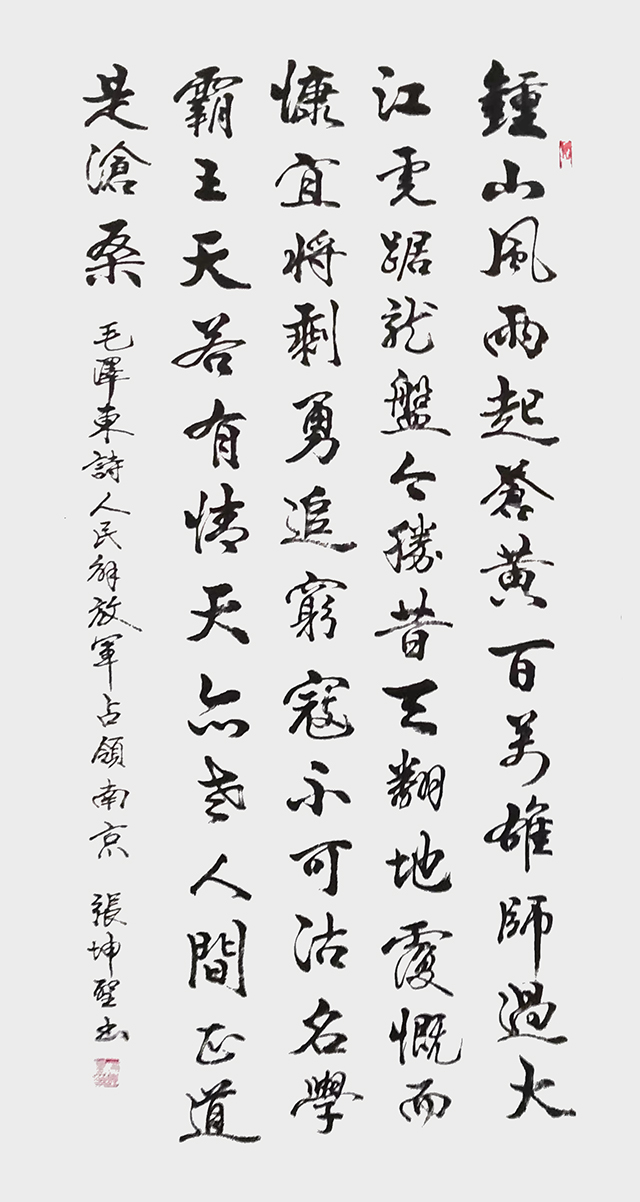 鍾山風雨起蒼黃百萬雄師過大
江虎踞龍盤今勝昔天翻地覆慨而
慷宜将剩勇追窮寇不可沽名學
霸王天若有情天亦老人間正道
是滄桑 毛澤東詩人民解放軍占領南京 張坤聖书